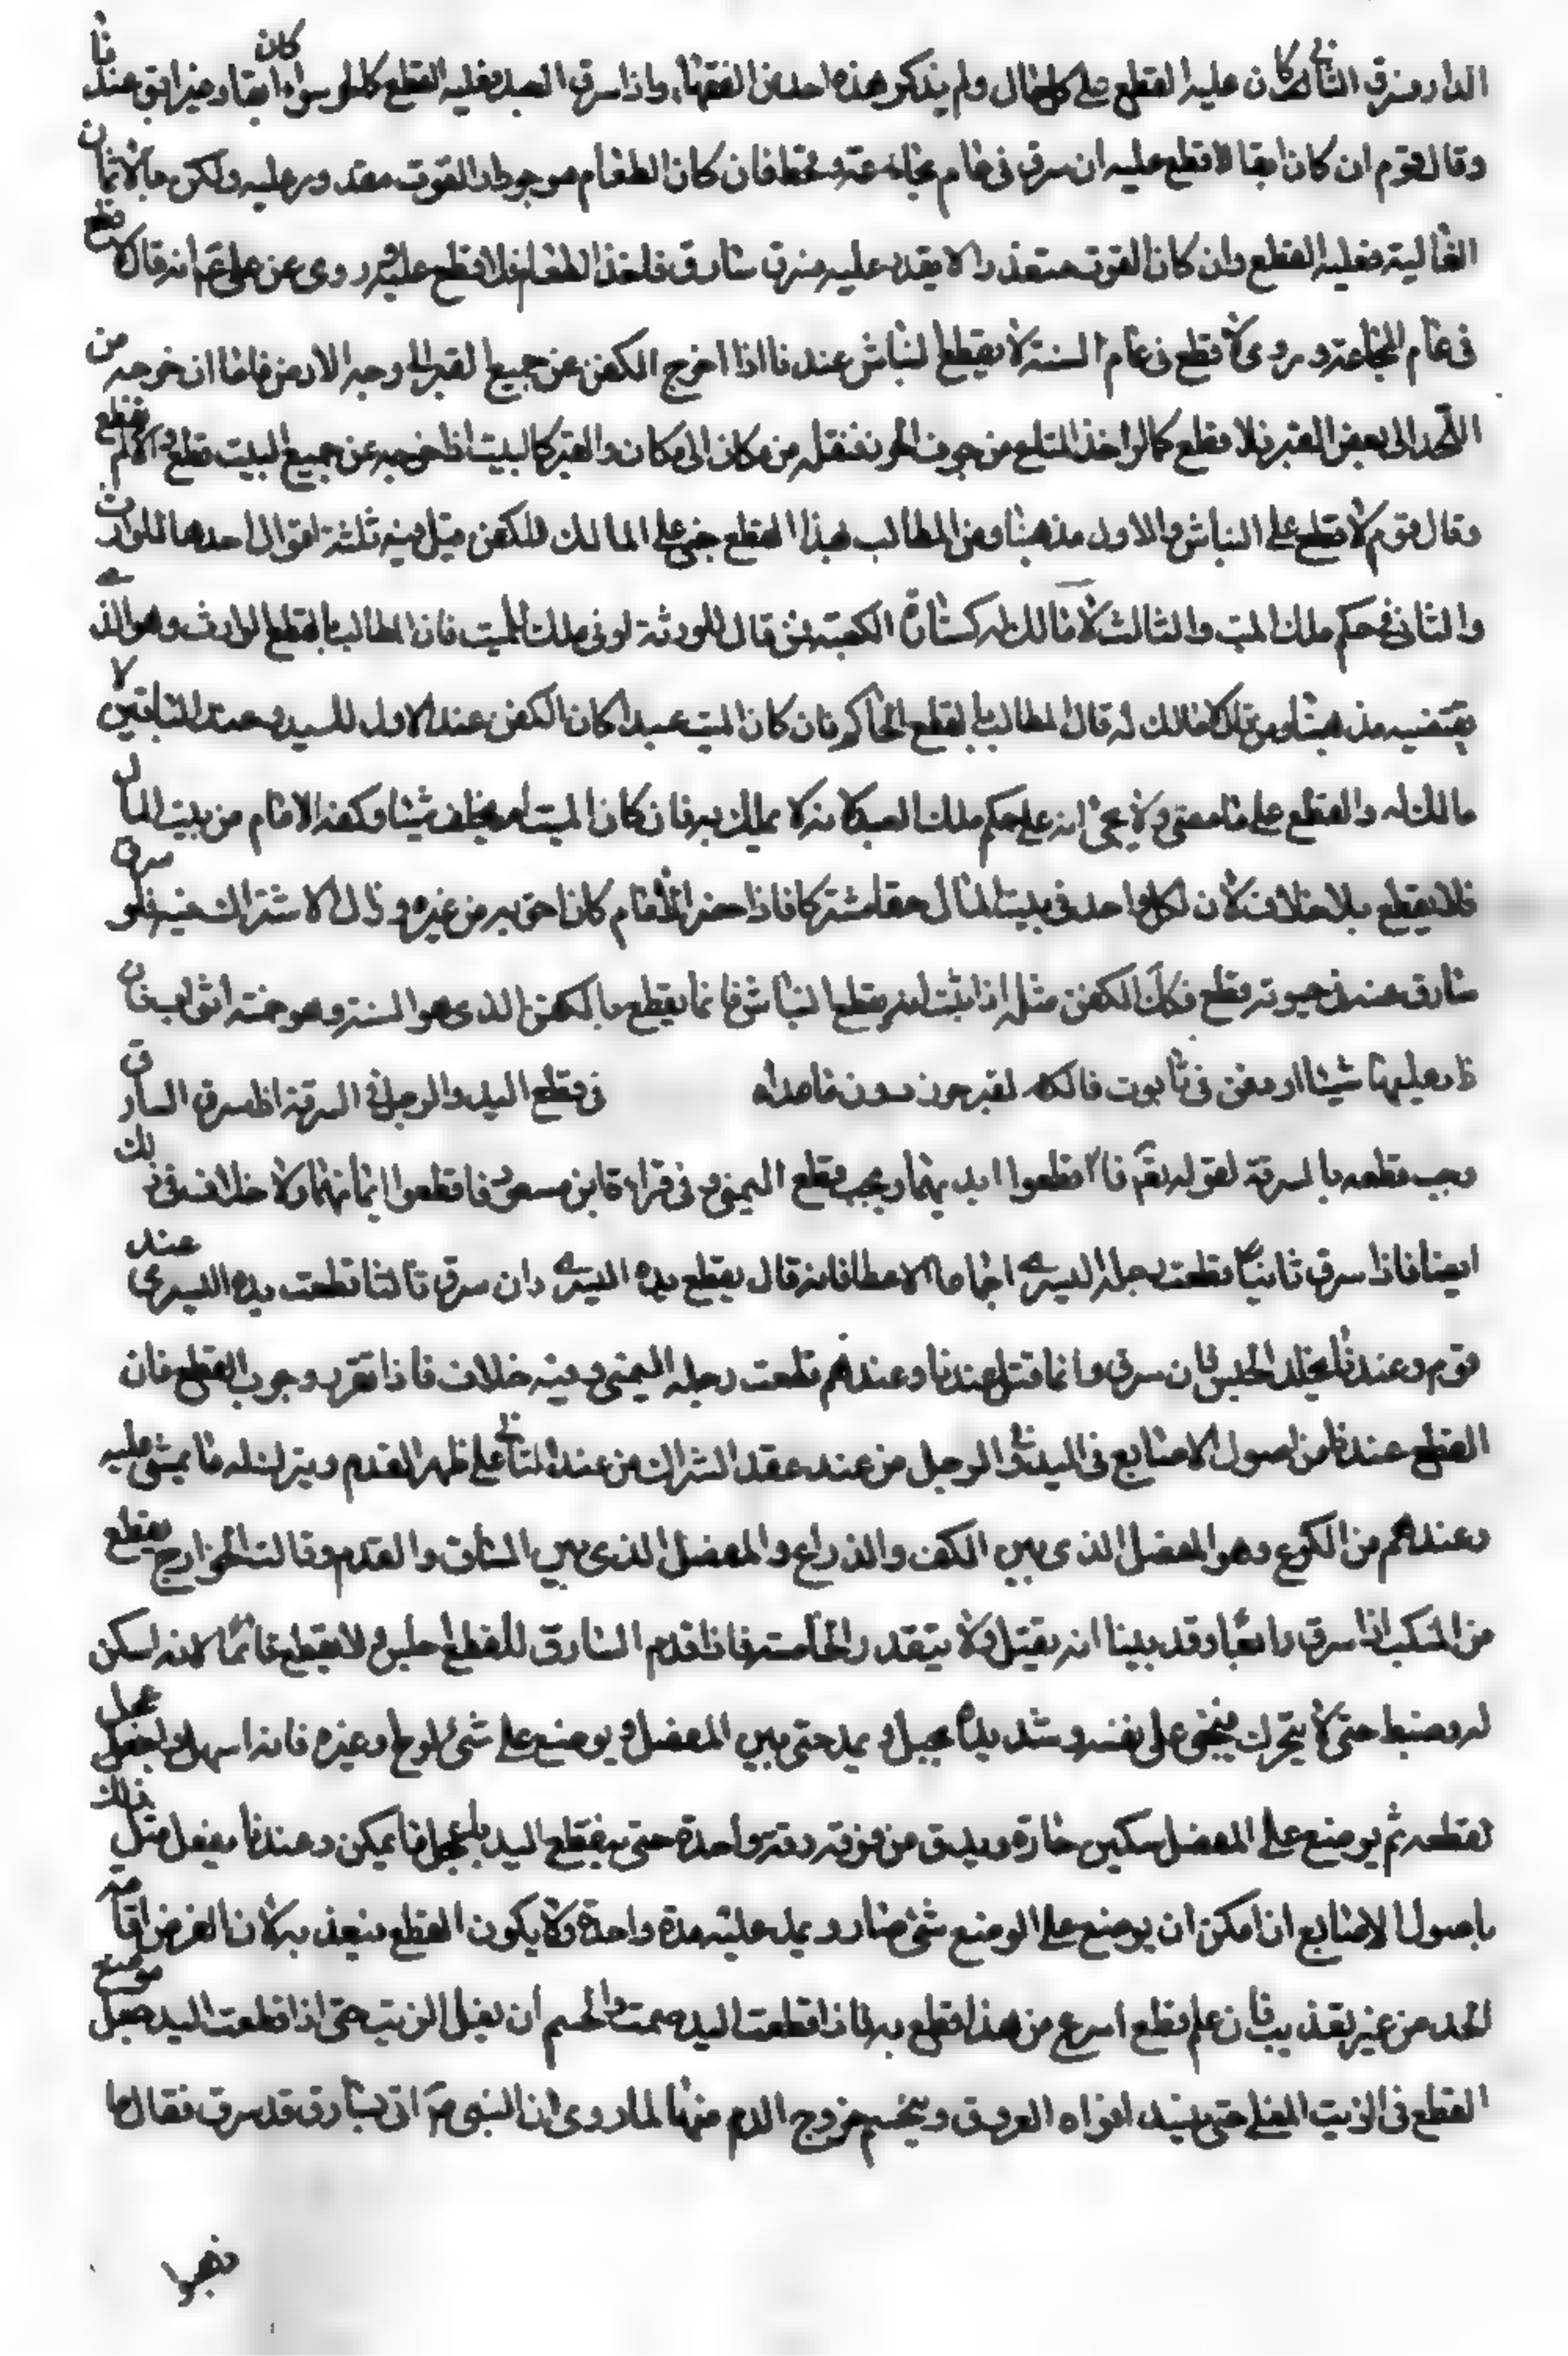 الدار فسرق الثاني كان عليه القطع على كل حال ولم يذكر هذه احد من الفقهاء واذا سرق العبد فعليه القطع كالحر سواء كان ابقا وغير ابق عندنا
وقال قوم ان كان ابقا لا قطع عليه ان سرق في عام مجاعة وقحط فان كان الطعام موجودا والقوت مقدور عليه ولكن بالاثمان
الغالية فعليه القطع وان كان القوت متعذرا لا يقدر عليه فسرق سارق فاخذ الطعام فلا قطع عليه روى عن علي عم انه قال لا قطع
في عام المجاعة وروى لا قطع في عام السنة لا يقطع النباش عندنا اذا اخرج الكفن عن جميع القبر الى وجه الارض فاما ان خرجه من
اللحد الى بعض القبر فلا قطع كما لو اخذ المتاع من جوف الحرز فنقله من مكان الى مكان والقبر كالبيت اذا اخرجه عن جميع البيت قطع والا لم يقطع
وقال قوم لا قطع على النباش والاول مذهبنا ومن المطالب بهذا القطع مبنى على المالك للكفن قيل فيه ثلثة اقوال احدها للوارث
والثاني في حكم ملك الميت والثالث لا مالك له كستارة الكعبة فمن قال للورثة او في ملك الميت فان المطالب بالقطع الوارث وهو الذي
يقتضيه مذهبنا ومن قال لا مالك له قال المطالب بالقطع الحاكم فان كان الميت عبدا كان الكفن عند الاول للسيد وعند الباقين لا
مالك له والقطع على ما مضى ولا يجئ انه على حكم ملك العبد لانه لا يملك فان كان الميت لم يخلف شيئا وكفنه الامام من بيت المال
فلا يقطع بلا خلاف لان لكل واحد في بيت المال حقا مشتركا فاذا حضر الامام كان احق به من غيره وزال الاشتراك فيه فلو سرق
سارق منه في حيوته قطع فكك الكفن مثله اذا ثبت انه يقطع النباش فانما يقطع بالكفن الذي هو السنة وهو خمسة اثواب فان
زاد عليها شيئا او دفن في تابوت فالكل لقبر حرز دون ما عداه في قطع اليد والرجل في السرقة اذا سرق السارق
وجب قطعه بالسرقة لقوله تعالى فاقطعوا ايديهما ويجب قطع اليمنى وفي قراءة ابن مسعود فاقطعوا ايمانهما ولا خلاف في ذلك
ايضا فاذا سرق ثانيا قطعت رجله اليسرى اجماعا الا عطا فانه قال يقطع يده اليسرى وان سرق ثالثا قطعت يده اليسرى عند
قوم وعندنا يخلد الحبس فان سرق رابعا قتل عندنا وعندهم قطعت رجله اليمنى وفيه خلاف فاذا تقرر وجوب القطع فان
القطع عندنا من اصول الاصابع في اليد وفي الرجل من عند معقد الشراك من عند الناتي على ظهر القدم ويترك له ما يمشى عليه
وعندهم من الكوع وهو المفصل الذي بين الكف والذراع والمفصل الذي بين الساق والقدم وقالت الخوارج يقطع
من المنكب اذا سرق رابعا وقد بينا انه يقتل ولا يتقدر الخامسة فاذا قدم السارق للقطع اجلس ولا يقطع قائما لانه امكن
له وضبط حتى لا يتحرك فيجنى على نفسه وشد يده بحبل ويمد حتى يبين المفصل ويوضع على شئ لوح او غيره فانه اسهل واعجل
لقطعه ثم يوضع على المفصل سكين حادة ويدق من فوقه دقة واحدة حتى يقطع اليد باعجل ما يمكن وعندنا يفعل مثل ذلك
باصول الاصابع ان امكن ان يوضع على الموضع شئ حاد ويمد عليه مدة واحدة ولا يكون القطع فيعذب به لان الغرض اقامة
الحد من غير تعذيب فان علم قطع اسرع من هذا قطع به فاذا قطعت اليد حسمت والحسم ان يغلى الزيت حتى اذا قطعت اليد جعل موضع
القطع في الزيت المغلى حتى ينسد افواه العروق وينحسم خروج الدم منها لما روى ان النبي ص اتى بسارق قد سرق فقال ما